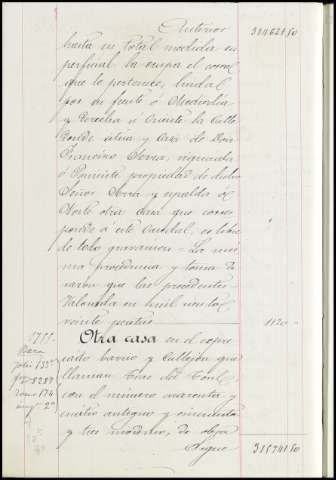 Anterior 314621 50
hasta un total medida su-
perficial la ocupa el corral
que le pertenece, lindal
por su frente ó Mediodía
y derecha ú Oriente la Calle
donde sitúa y Casa de Don
Francisco Serra, izquierda
ó Poniente propiedad de dicho
Señor Serra y espalda ó
Norte otra casa que corres-
ponde á este Caudal, es libre
de todo gravamen = La mis-
ma procedencia y toma de
razon que las precedentes
Valorada en mil ciento
veinte pesetas 1120
Otra casa en el expre-
sado barrio y Callejón que
llaman
con el número cuarenta y
cuatro antiguo y cincuenta
y tres moderno, de obra
Sigue 315741 50